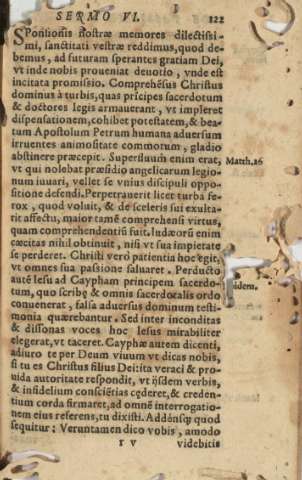 SERMO VI. 122
SPonsionis nostræ memores dilectissi-
mi, sanctitati vestræ reddimus, quod de-
bemus, ad futuram sperantes gratiam Dei,
vt inde nobis proueniat deuotio, vnde est
incitata promissio. Comprehẽsus Christus
dominus à turbis, quas prĩcipes sacerdotum
& doctores legis armauerant, vt impleret
dispensationem, cohibet potestatem, & bea-
tum Apostolum Petrum humana aduersum
irruentes animositate commotum, gladio
abstinere præcepit. Superfluum enim erat, Matth. 26
vt qui nolebat præsidio angelicarum legio-
num iuuari, vellet se vnius discipuli oppo-
sitione defendi. Perpetrauerit licet turba fe-
rox, quod voluit, & de sceleris sui exulta-
rit affectu, maior tamẽ comprehensi virtus,
quam comprehendentiũ fuit. Iudæorũ enim
cæcitas nihil obtinuit, nisi vt sua impietate
se perderet. Christi verò patientia hoc egit,
vt omnes sua passione saluaret. Perducto
autẽ Iesu ad Caypham principem sacerdo-
tum, quo scribę & omnis sacerdotalis ordo Ibidem.
conuenerat, falsa aduersus dominum testi-
monia quærebantur. Sed inter inconditas
& dissonas voces hoc Iesus mirabiliter
elegerat, vt taceret. Cayphæ autem dicenti,
adiuro te per Deum viuum vt dicas nobis,
si tu es Christus filius Dei: ita veraci & pro-
uida autoritate respondit, vt ijsdem verbis,
& infidelium consciẽtias cęderet, & creden-
tium corda firmaret, ad omnẽ interrogatio-
nem eius referens, tu dixisti. Addẽsq́ quod
sequitur: Veruntamen dico vobis, amodo
r v videbitis